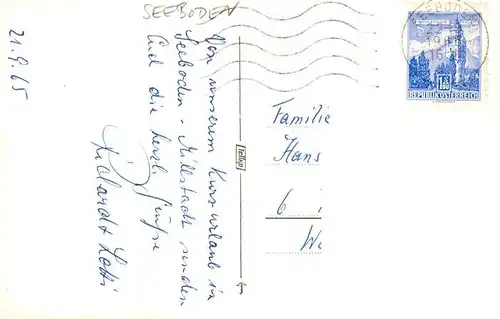 SEEBODEN
21.9.65
Von unserem Kurzurlaub in
Seeboden - Millstadt senden
Euch die herzl. Grüsse
Lotti
Familie
Hans
6
We
SEEBODEN
REPUBLIK ÖSTERREICH